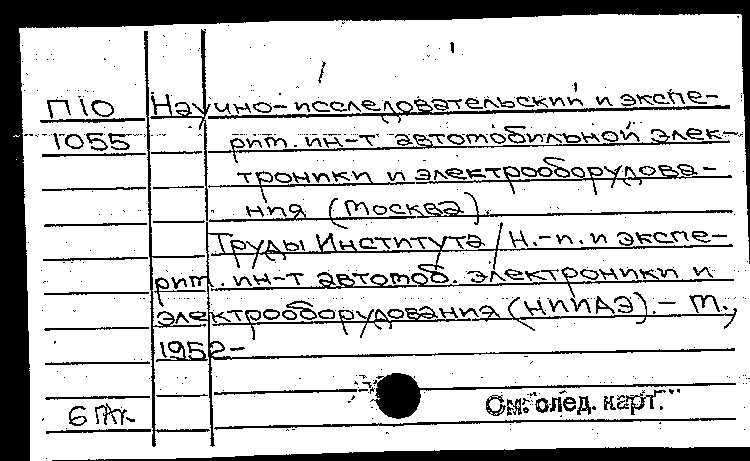 П10 Научно-исследовательский и экспе-
1055 рит. ин-т автомобильной элек-
троники и электрооборудова-
ния (Москва).
Труды Института / Н.-и. и экспе-
рит. ин-т автомоб. электроники и
электрооборудования (НИИАЭ). - М.,
1952-
См. след. карт.